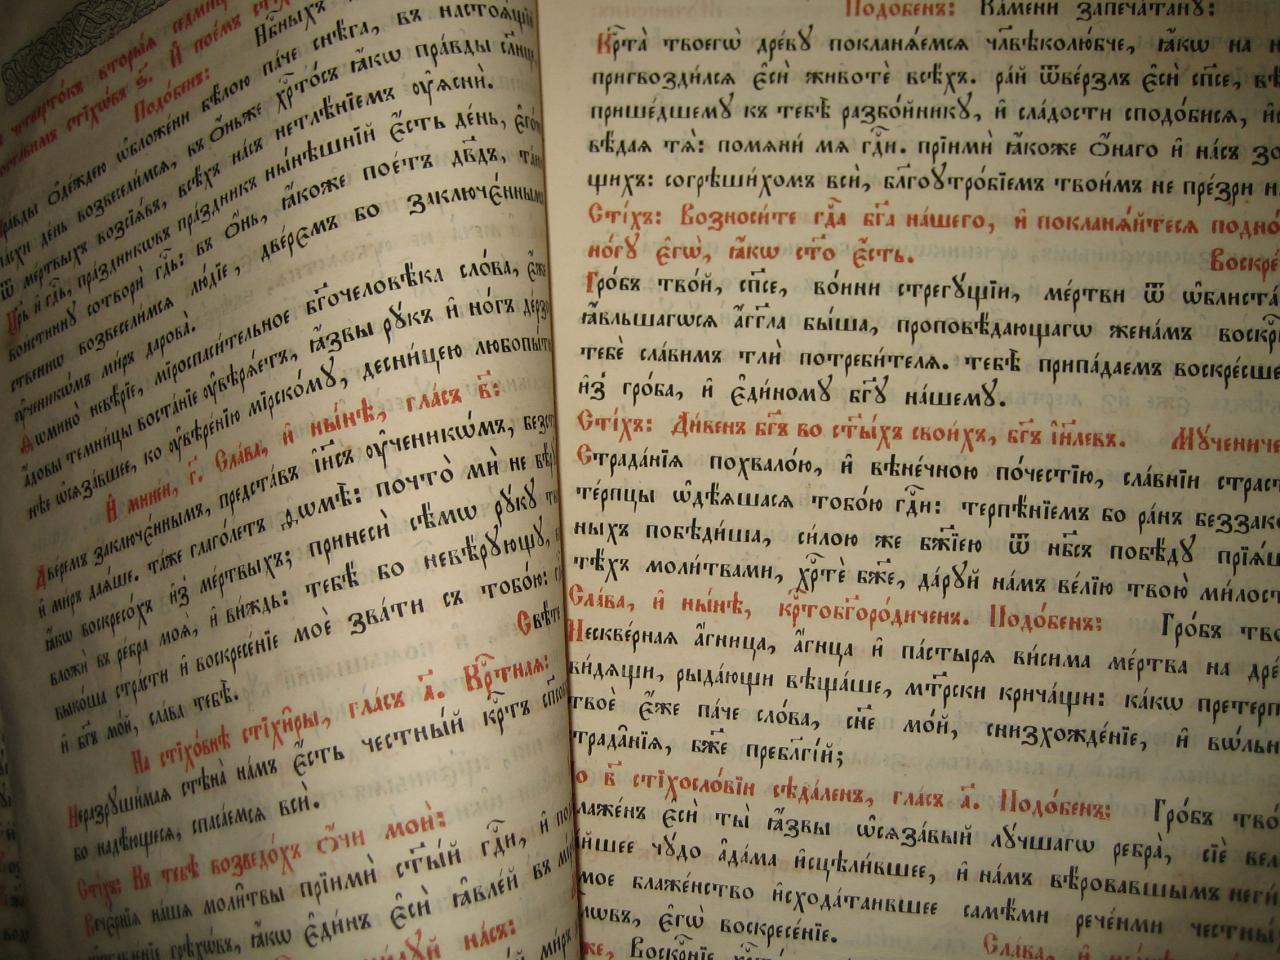 четверто́къ вторы́ѧ седми́ц
стїхѡ́въ ѕ҃. И҆ пое́мъ
Подо́бенъ: Нб҃ныхъ
пра́вды ѻ҆де́ждею ѡ҆блоче́ни бѣ́лою па́че снѣ́га, въ настоѧ́щїй
па́схи де́нь возвесели́мсѧ, въ ѻ҆́ньже хрⷭ҇то́съ ꙗ҆́кѡ пра́вды сл҃нце
ѿ ме́ртвыхъ возсїѧ́въ, всѣ́хъ на́съ нетлѣ́нїемъ ᲂу҆ѧснѝ.
Цр҃ь и҆ гдⷭ҇ь, пра́здникѡвъ пра́здникъ ны́нѣшнїй є҆́сть де́нь, є҆го́же
вои́стинну сотворѝ гдⷭ҇ь: въ ѻ҆́нь, ꙗ҆́коже пое́тъ дв҃дъ, та́ин
ственнѡ возвесели́мсѧ лю́дїе, две́ремъ бо заключє́ннымъ
ᲂу҆ченикѡ́мъ ми́ръ дарова̀.
Ѳѡмино̀ невѣ́рїе, мїроспаси́тельное бг҃очеловѣ́ка сло́ва, є҆́же
а҆́довы темни́цы воста́нїе ᲂу҆вѣрѧ́етъ, ꙗ҆́звы рꙋ́къ и҆ но́гъ дерзо
нѣ́е ѡ҆сѧза́вшее, ко ᲂу҆вѣре́нїю мїрско́мꙋ, десни́цею любопы́тн
И҆ мине́и, г҃. Сла́ва, и҆ ны́нѣ, гла́съ в҃:
Две́ремъ заключє́ннымъ, предста́въ і҆и҃съ ᲂу҆ченикѡ́мъ, безст
и҆ ми́ръ даѧ́ше. та́же глаго́летъ ѳѡмѣ̀: почто̀ мѝ не вѣ́р
ꙗ҆́кѡ воскресо́хъ и҆з̾ ме́ртвыхъ; принесѝ сѣ́мѡ рꙋ́кꙋ тв
вложѝ въ ре́бра моѧ̑, и҆ ви́ждь: тебѣ́ бо невѣ́рꙋющꙋ, в
выко́ша стра́сти и҆ воскресе́нїе моѐ зва́ти съ тобо́ю:
и҆ бг҃ъ мо́й, сла́ва тебѣ̀. Свѣ́т
На стїхо́внѣ стїхи̑ры, гла́съ а҃. Крⷭ҇тнаѧ:
Неразрꙋши́маѧ стѣна̀ на́мъ є҆́сть честны́й крⷭ҇тъ сп҃со
бо надѣ́ющесѧ, спаса́емсѧ всѝ.
Сті́хъ: Къ тебѣ̀ возведо́хъ ѻ҆́чи моѝ:
Вечє́рнїѧ на́шѧ моли̑твы прїимѝ ст҃ы́й гдⷭ҇и, и҆ по
грѣхѡ́въ, ꙗ҆́кѡ є҆ди́нъ є҆сѝ ꙗ҆вле́й въ мі́
на́съ:
Подо́бенъ: Ка́мени запеча́танꙋ:
Крⷭ҇та̀ твоегѡ̀ дре́вꙋ покланѧ́емсѧ чл҃вѣколю́бче, ꙗ҆́кѡ на н
пригвозди́лсѧ є҆сѝ животѐ всѣ́хъ. ра́й ѿве́рзлъ є҆сѝ сп҃се, вѣ́
прише́дшемꙋ къ тебѣ̀ разбо́йникꙋ, и҆ сла́дости сподо́бисѧ, и҆
вѣ́даѧ тѧ̀: помѧни́ мѧ гдⷭ҇и. прїимѝ ꙗ҆́коже ѻ҆́наго и҆ на́съ зо
щихъ: согрѣши́хомъ всѝ, бл҃гоꙋтро́бїемъ твои́мъ не пре́зри н
Сті́хъ: Возноси́те гдⷭ҇а бг҃а на́шего, и҆ покланѧ́йтесѧ подно́
но́гꙋ є҆гѡ̀, ꙗ҆́кѡ ст҃о є҆́сть. Воскре́
Гро́бъ тво́й, сп҃се, во́ини стрегꙋ́щїи, ме́ртви ѿ ѡ҆блиста́
ꙗ҆́вльшагѡсѧ а҆́гг҃ла бы́ша, проповѣ́дающагѡ жена́мъ воскрⷭ҇
тебѐ сла́вимъ тлѝ потреби́телѧ. тебѣ̀ припа́даемъ воскре́сше
и҆з̾ гро́ба, и҆ є҆ди́номꙋ бг҃ꙋ на́шемꙋ.
Сті́хъ: Ди́венъ бг҃ъ во ст҃ы́хъ свои́хъ, бг҃ъ і҆и҃левъ. Мꙋ́чениче
Страда́нїѧ похвало́ю, и҆ вѣне́чною по́честїю, сла́внїи страст
те́рпцы ѡ҆дѣ́ѧшасѧ тобо́ю гдⷭ҇и: терпѣ́нїемъ бо ра́нъ беззако́
ныхъ побѣди́ша, си́лою же бж҃їею ѿ нб҃съ побѣ́дꙋ прїѧ́ш
тѣ́хъ моли́твами, хрⷭ҇тѐ бж҃е, да́рꙋй на́мъ ве́лїю твою̀ ми́лост
Сла́ва, и҆ ны́нѣ, крⷭ҇тобг҃оро́диченъ. Подо́бенъ: Гро́бъ тво
Нескве́рнаѧ а҆́гница, а҆́гнца и҆ па́стырѧ ви́сима ме́ртва на дре́
ви́дѧщи, рыда́ющи вѣща́ше, мт҃рски крича́щи: ка́кѡ претерп
твоѐ є҆́же па́че сло́ва, сн҃е мо́й, снизхожде́нїе, и҆ вѡ́льн
страда̑нїѧ, бж҃е пребл҃гі́й;
По в҃ стїхосло́вїи сѣда́ленъ, гла́съ а҃. Подо́бенъ: Гро́бъ тво
Блаже́нъ є҆сѝ ты̀ ꙗ҆́звы ѡ҆сѧза́вый лꙋ́чшагѡ ребра̀, сїѐ вел
йшее чꙋ́до а҆да́ма и҆сцѣли́вшее, и҆ на́мъ вѣ́ровавшымъ неги́
мое блаже́нство и҆схода́таившее самѣ́ми рече́ными честны́
мѡвъ, є҆гѡ̀ воскресе́нїе.
же, Воскрⷭ҇нїе Сла́ва, и҆ н